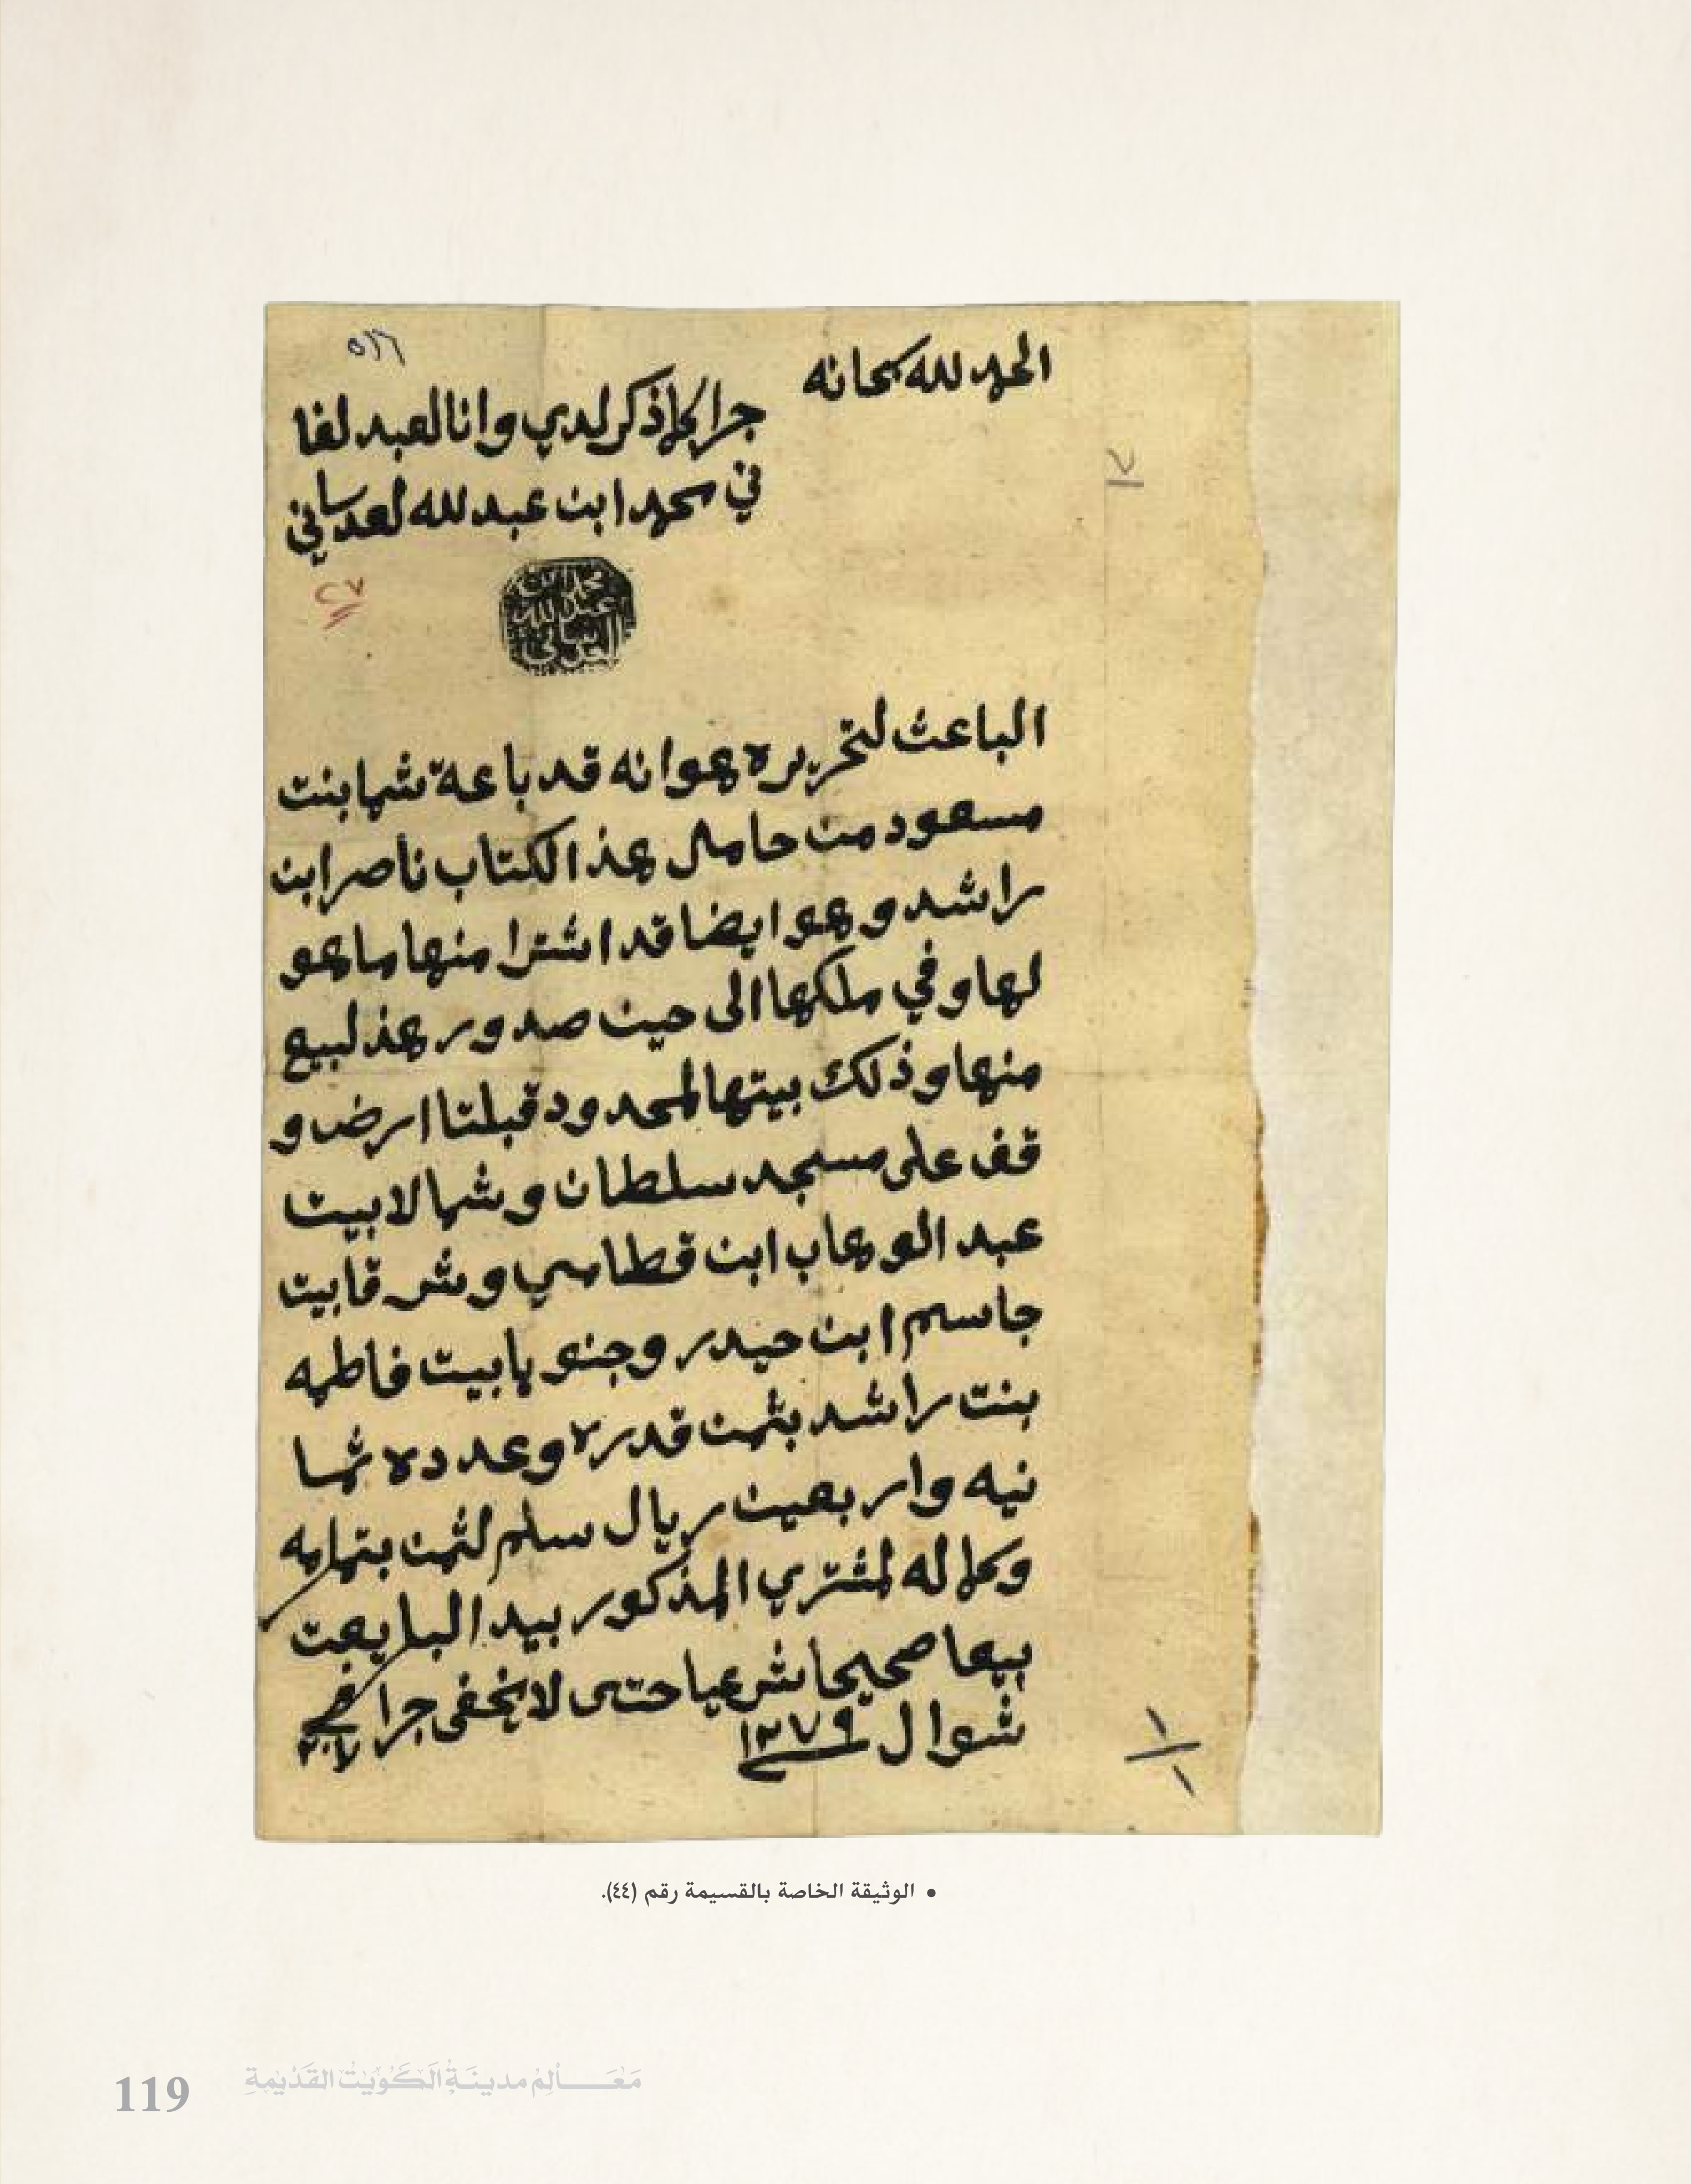 ٥١٦
الحمد لله سبحانه
جرا كما ذكر لدي وانا لعبد لفا
ني محمد ابن عبد لله لعدساني
٧
٢٧
محمد ابن
عبد الله
العدساني
الباعث لتحريره هوا نه قد باعة شما بنت
مسعود من حامل هذا الكتاب ناصر ابن
راشد وهو ايضا قد اشترا منها ما هو
لها وفي ملكها الى حين صدور هذ لبيع
منها وذلك بيتها لمحدود قبلتا ارض و
قف على مسجد سلطان وشمالا بيت
عبد الوهاب ابن قطامي وشرقا بيت
جاسم ابن حيدر وجنوبا بيت فاطمه
بنت راشد بثمن قدره وعدده ثما
نيه واربعين ريال سلم لثمن بتمامه
وكماله لمشتري المذكور بيد البايعت
بيعا صحيحا شرعيا حتى لا يخفى جرا في ٢٧
شوال ١٢٧٩
١
١
• الوثيقة الخاصة بالقسيمة رقم (٤٤).
119 مَعَالِمُ مدينَةِ الكُوَيْتِ القَدِيمَةِ